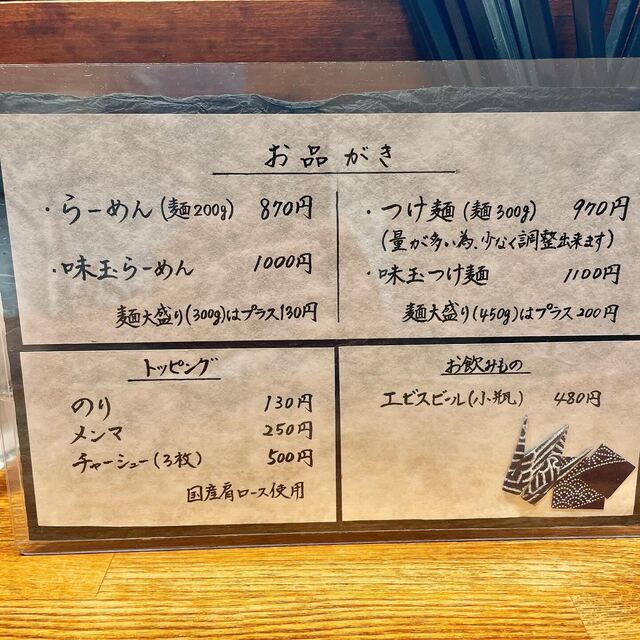 お品がき
・らーめん(麺200g) 870円
・味玉らーめん 1000円
麺大盛り(300g)はプラス130円
・つけ麺(麺300g) 970円
(量が多い為、少なく調整出来ます)
・味玉つけ麺 1100円
麺大盛り(450g)はプラス200円
トッピング
のり 130円
メンマ 250円
チャーシュー(3枚) 500円
国産肩ロース使用
お飲みもの
エビスビール(小瓶) 480円